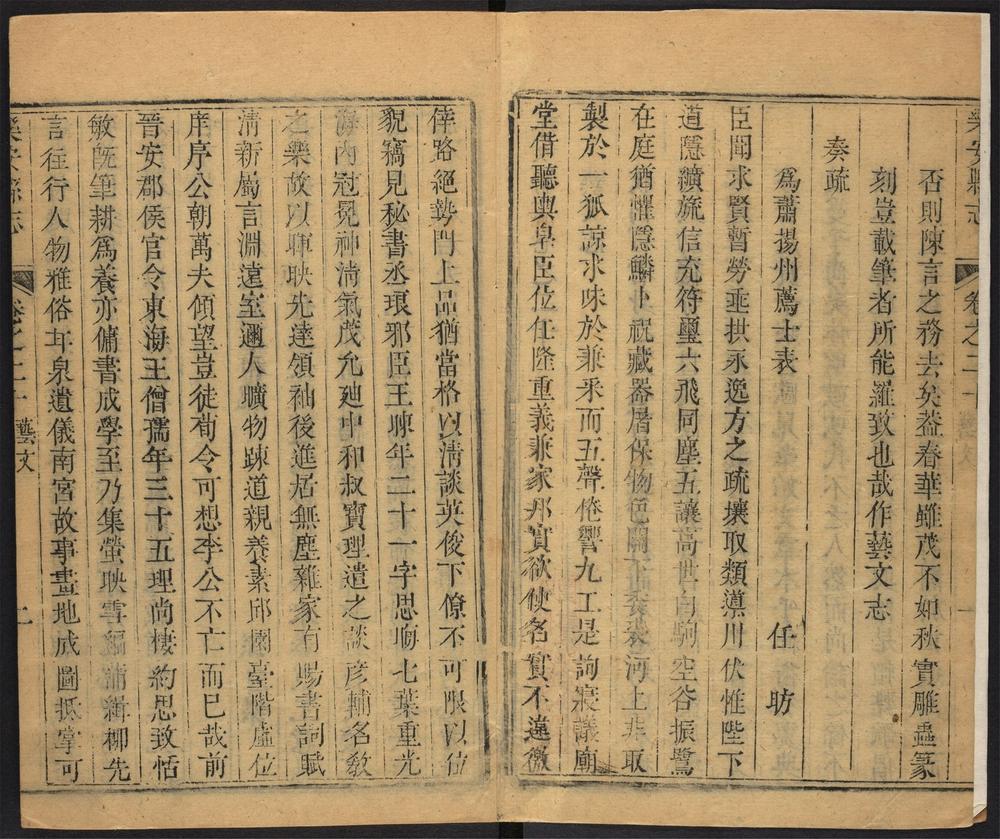 樂安縣志
卷之二十
否則陳言之務去矣葢春華雖茂不如秋實雕蟲篆
刻豈載筆者所能羅致也哉作藝文志
奏疏
為蕭揚州薦士表
任昉
臣聞求賢暫勞垂拱永逸方之疏壤取類導川伏惟陛下
道隱纊旒信充符璽六飛同塵五讓高世白駒空谷振鷺
在庭猶懼隱鱗卜祝藏器屠保物色關下委裘河上非取
製於一狐諒求味於兼采而五聲倦響九工是詢寢議廟
堂借聽輿皁臣位任隆重義兼家邦實欲使名實不違徼
倖路絕勢門上品猶當格以清談英俊下僚不可限以位
貌竊見秘書丞琅邪臣王暕年二十一字思晦七葉重光
海內冠冕神清氣茂允廸中和叔寶理遣之談彥輔名敎
之樂故以暉映先達領袖後進居無塵雜家有賜書詞賦
清新屬言淵遠室邇人曠物踈道親養素邱園臺階虛位
庠序公朝萬夫傾望豈徒荀令可想李公不亡而已哉前
晉安郡侯官令東海王僧孺年三十五理尙棲約思致恬
敏旣筆耕為養亦傭書成學至乃集螢映雪編蒲緝柳先
言往行人物雅俗甘泉遺儀南宮故事畫地成圖抵掌可
樂安縣志
卷之二十
藝文
上